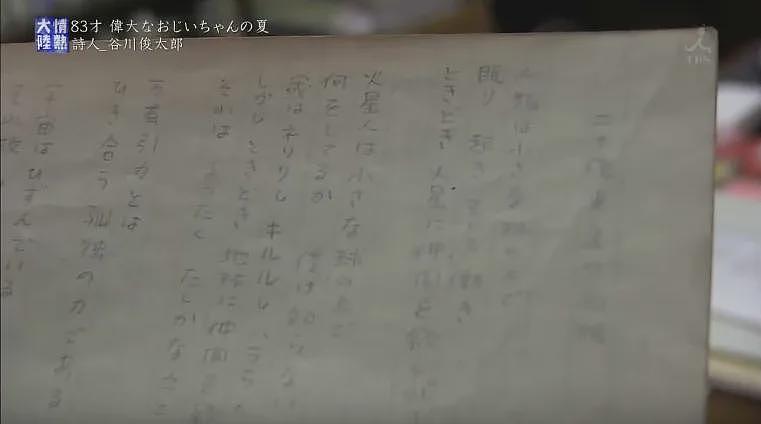 情熱大陸
83才 偉大なおじいちゃんの夏
詩人_谷川俊太郎
TBS
二十億光年の孤独
人類は小さな球の上で
眠り 起き そして働き
ときどき火星に仲間を欲しがり
火星人は小さな球の上で
何をしてるか 僕は知らない
(或はネリリし キルルし ハララ
しかしときどき 地球に仲間を欲
それは まったく たしかなこと
万有引力とは
ひき合う 孤独の力である
宇宙はひずんでいる